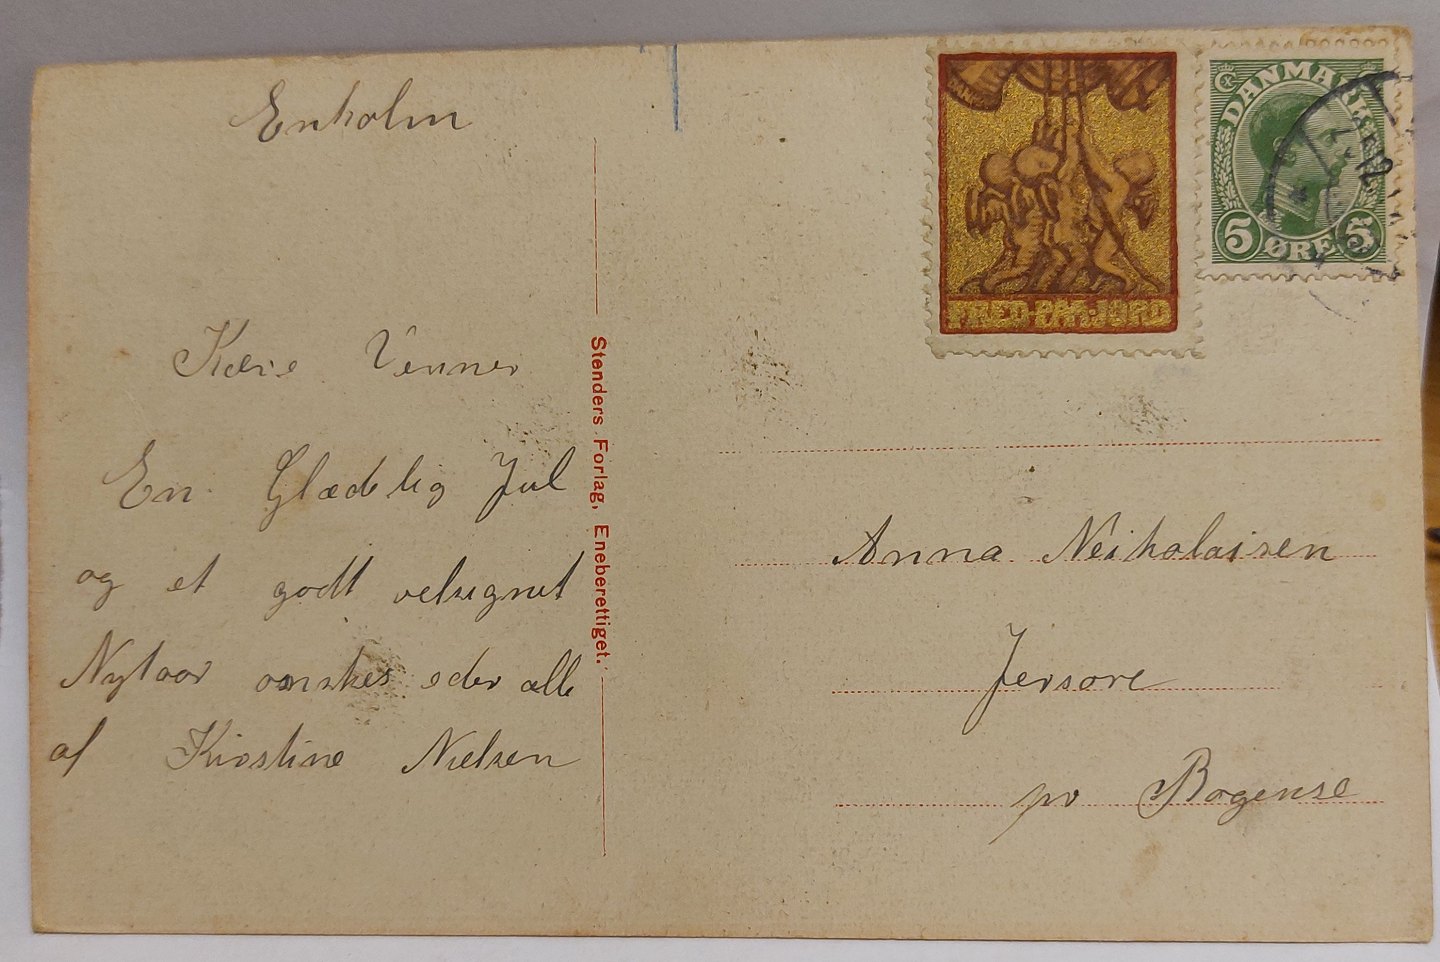 Enholm
Kære Venner
En Glædelig Jul
og et godt velsignet
Nytaar ønskes eder alle
af Kirstine Nielsen
Stenders Forlag, Eneberettiget.
FRED·PAA·JORD
DANMARK
5 ØRE 5
Anna Neikolaisen
Jersore
pr Bogense